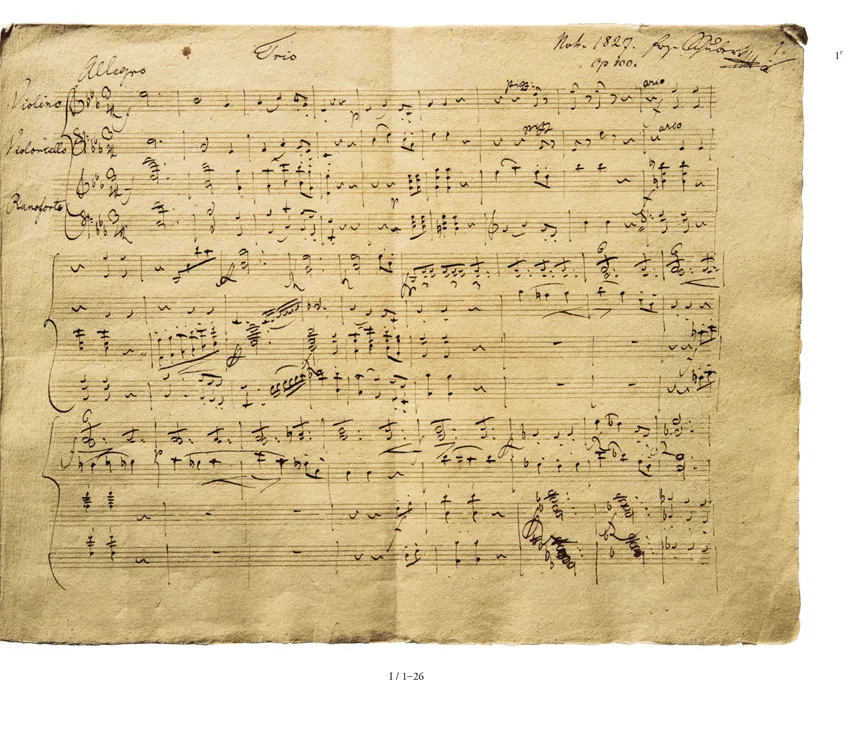 Trio
Nov. 1827. Frz. Schubert mpia
Op 100.
1.
1r
Allegro
Violino
pizz.
arco
Violoncello
pizz
arco
Pianoforte
I / 1–26